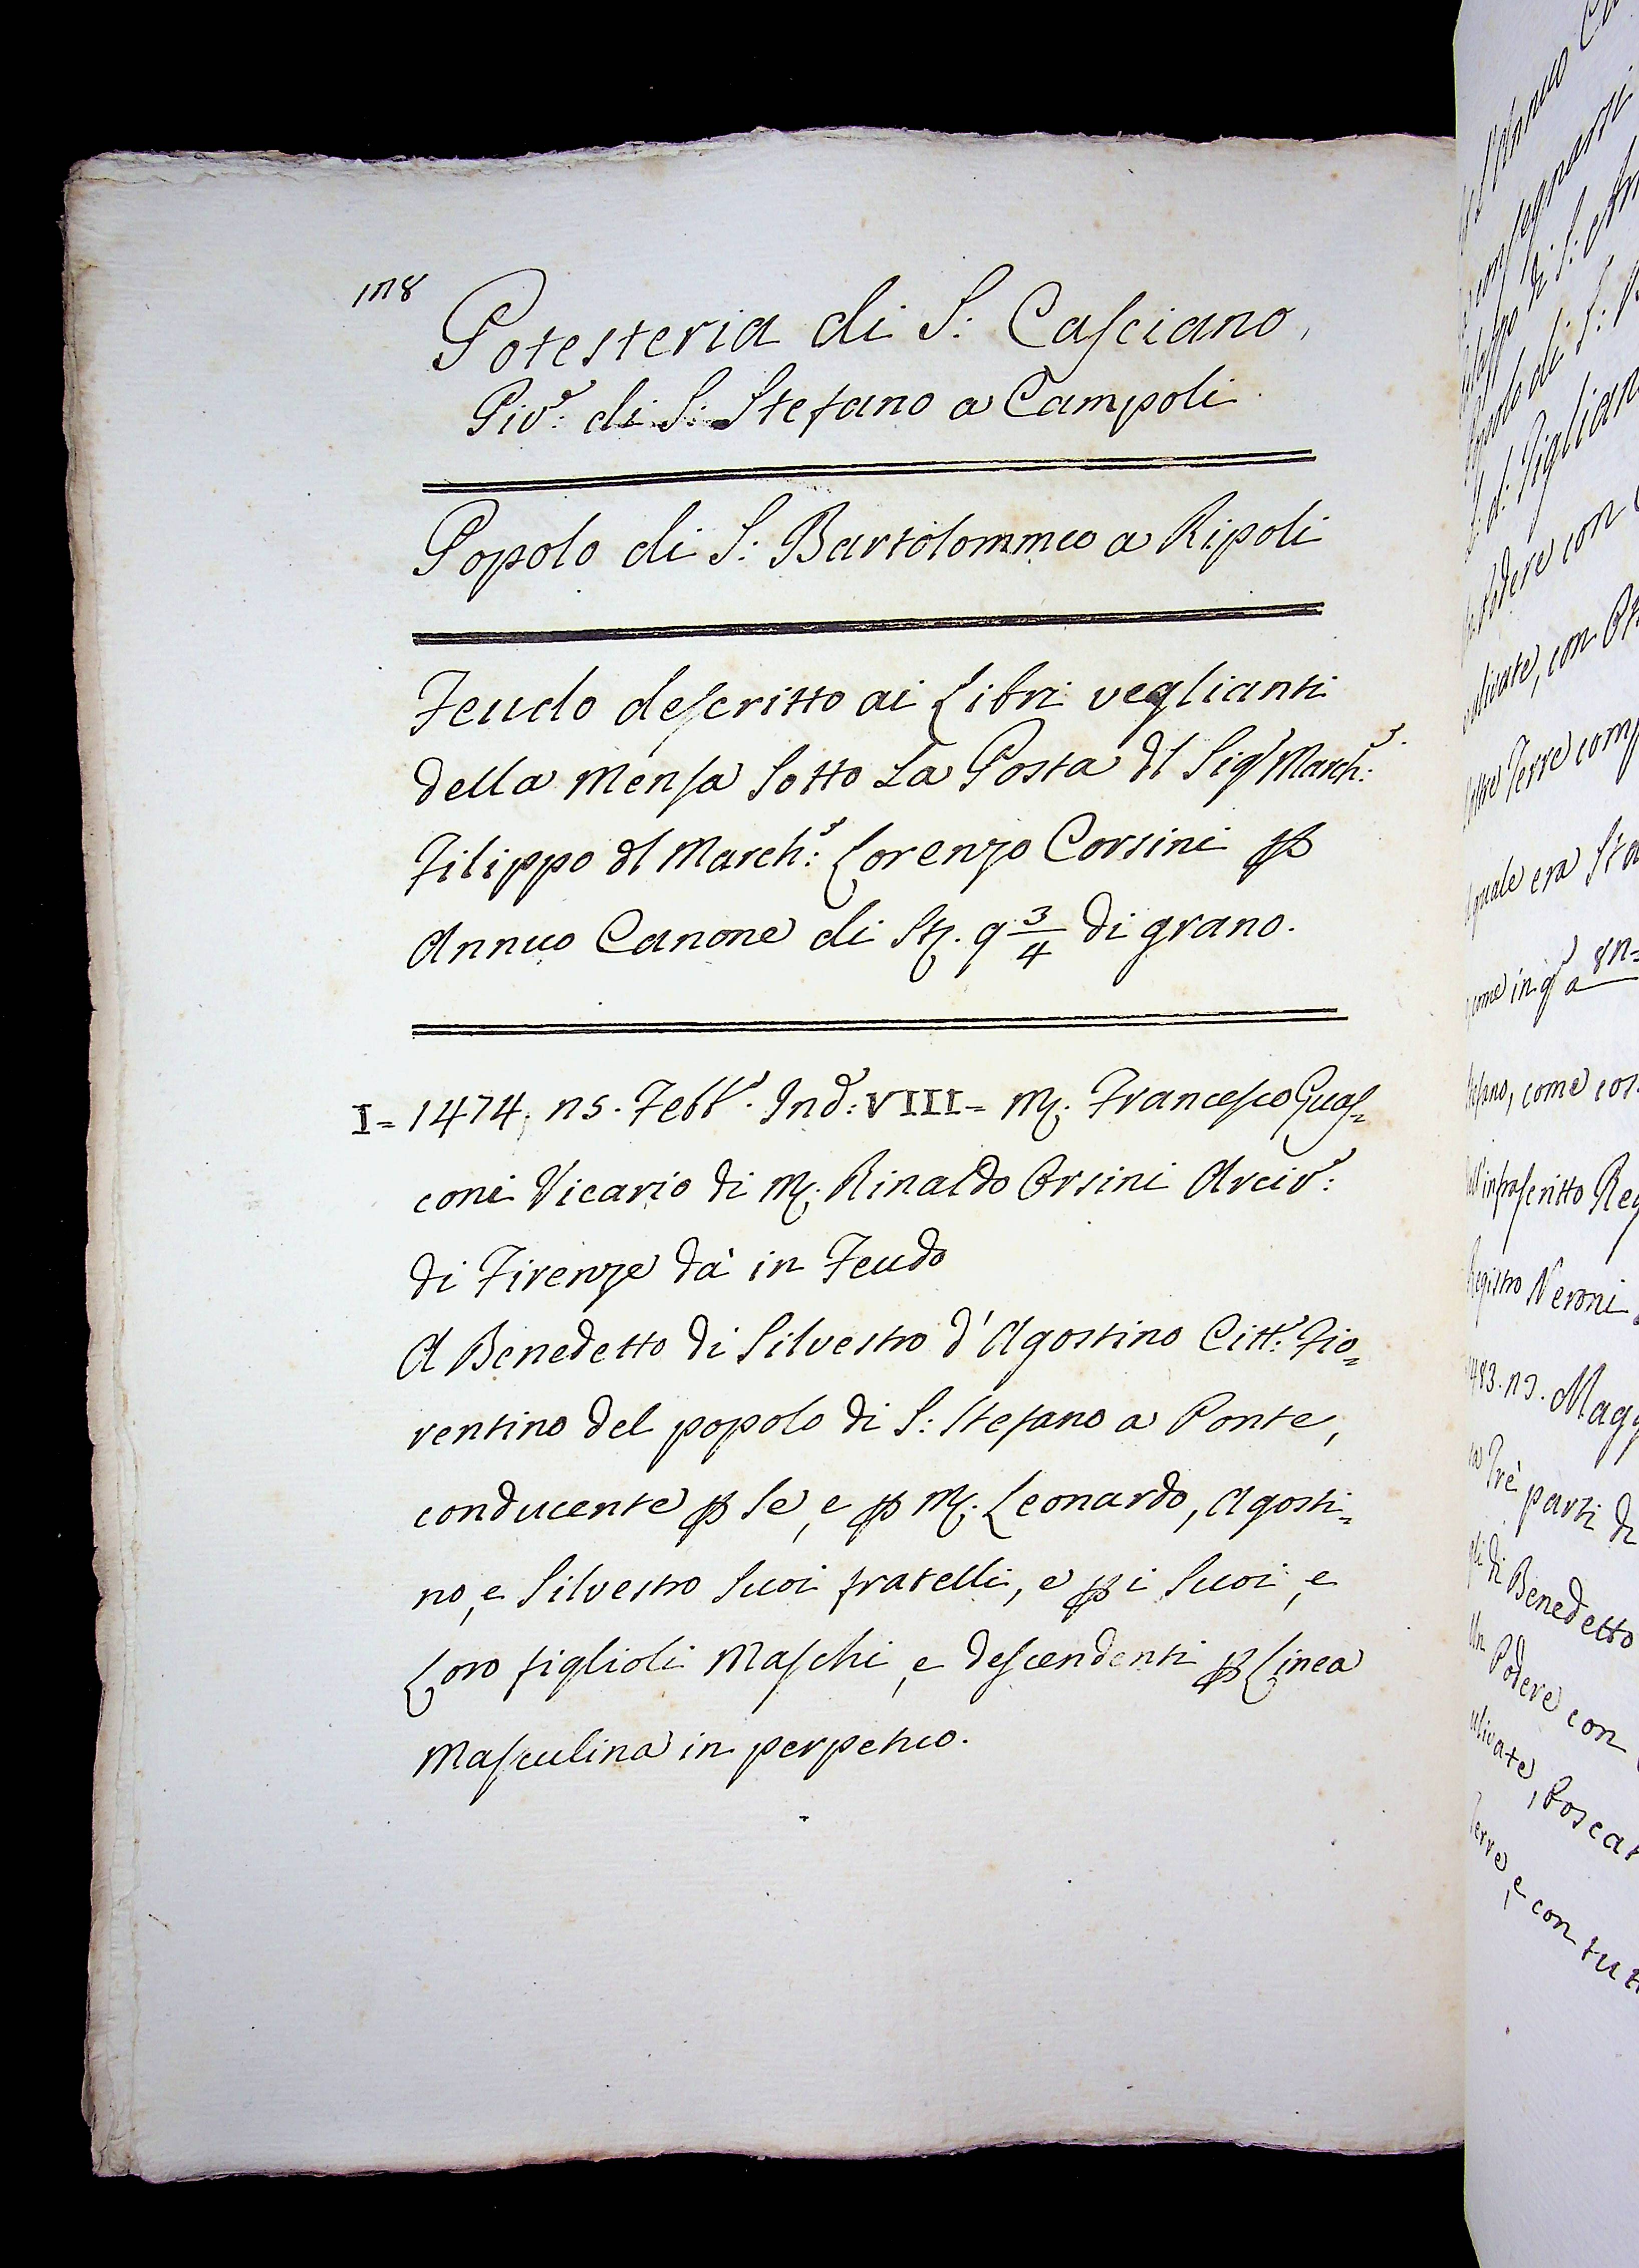 178
Potesteria di S: Casciano,
Piv.e: di S: Stefano a Campoli
Popolo di S: Bartolommeo a Ripoli
Feudo descritto ai Libri veglianti
della Mensa Sotto La Posta dl Sig.r March.e:
Filippo dl March.e: Lorenzo Corsini p
Annuo Canone di St. 9 3/4 di grano.
I= 1474. ns. Febb.o. Ind.e: VIII= M. Francesco Guas=
coni Vicario di M. Rinaldo Orsini Arciv.o:
di Firenze dà in Feudo
A Benedetto di Silvestro d'Agostino Citt.o: Fio=
rentino del popolo di S: Stefano a Ponte,
conducente p se, e p M. Leonardo, Agosti=
no, e Silvestro Suoi fratelli, e p i Suoi, e
Loro figlioli Maschi, e descendenti p Linea
Masculina in perpetuo.
con segnarsi
podere con
Terre com
quale era
come in
Stefano, come cos
dell'infrascritto Reg
Registro Neroni
1483. ns. Magg
Trè parti di
di Benedetto
Un Podere con
ulivate, Boscat
Terre, e con tut